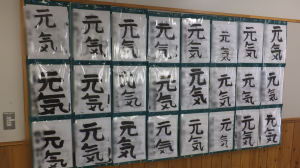 元気 元気 元気 元気 元気 元気 元気 元気
元気 元気 元気 元気 元気 元気 元気 元気
元気 元気 元気 元気 元気 元気 元気 元気